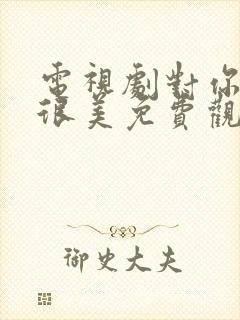 電視劇對你
很美免費觀
御史大夫